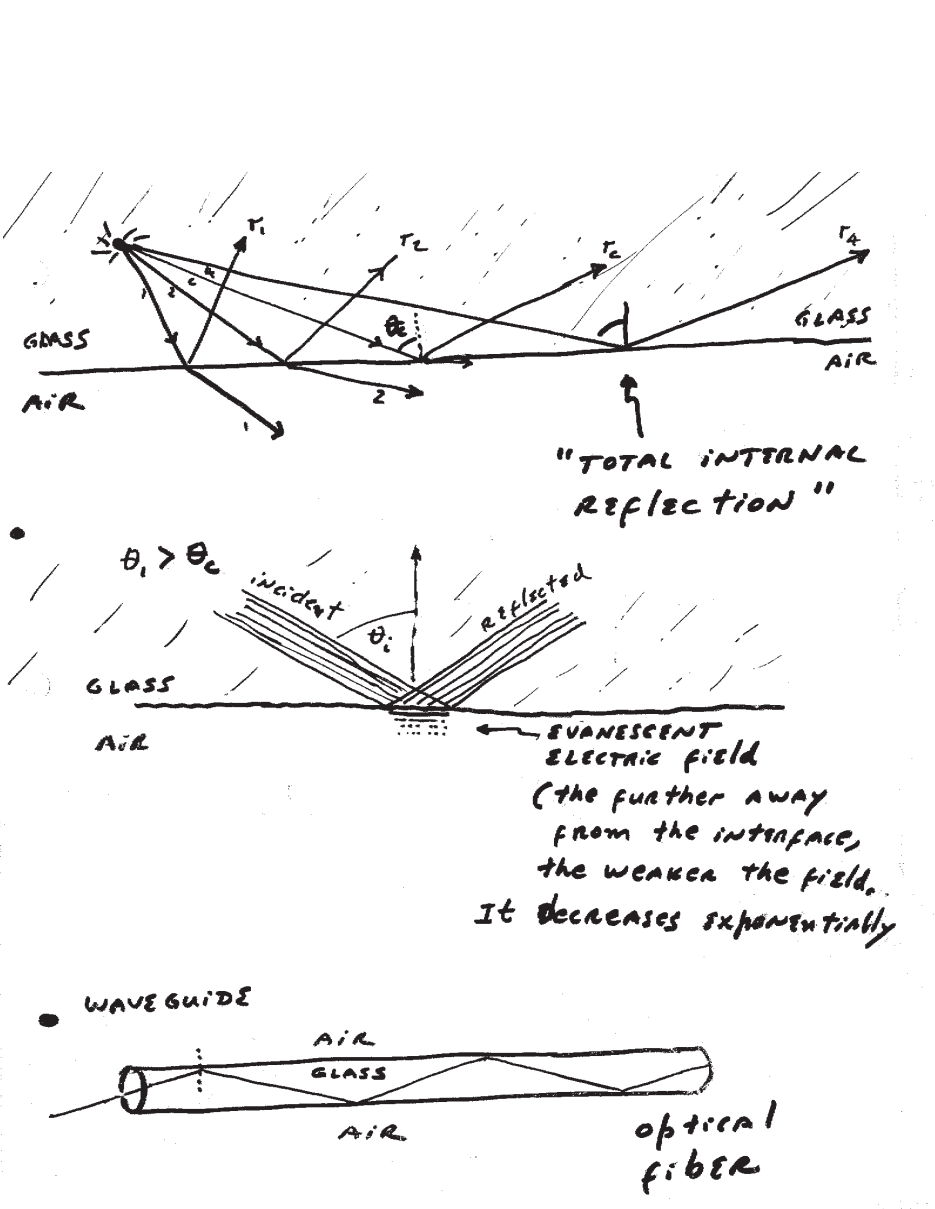 r₁
r₂
r_c
r₄
1 2 c 4
θ_c
GLASS
GLASS
AiR
AiR
2
1
"TOTAL iNTERNAL
REflECtioN"
θᵢ > θ_c
incident
REflected
θᵢ
GLASS
AiR
EVANESCENT
ELECTRiC fiEld
(the further AWAY
from the iNtERfACE,
the WEAKER the fiEld.
It dECREASES ExpoNENtiAlly
• WAVEGUiDE
AiR
GLASS
AiR
opticAl
fibER